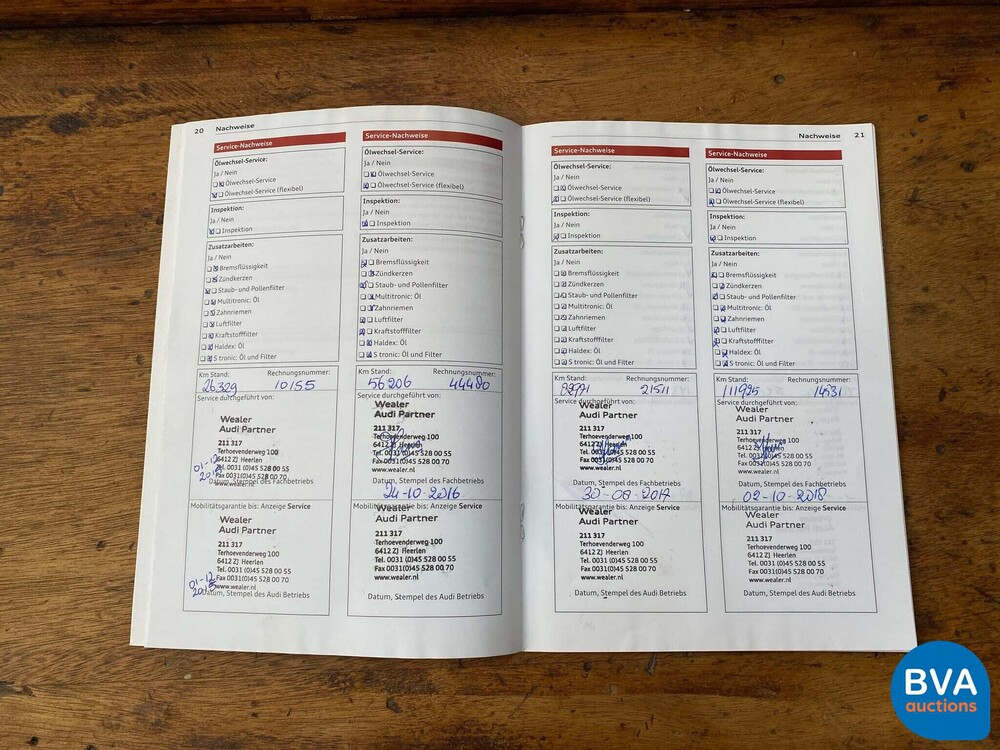 20 Nachweise
Service-Nachweise
Ölwechsel-Service:
Ja / Nein
Ölwechsel-Service
Ölwechsel-Service (flexibel)
Inspektion:
Ja / Nein
Inspektion
Zusatzarbeiten:
Ja / Nein
Bremsflüssigkeit
Zündkerzen
Staub- und Pollenfilter
Multitronic: Öl
Zahnriemen
Luftfilter
Kraftstofffilter
Haldex: Öl
S tronic: Öl und Filter
Km Stand: Rechnungsnummer:
26329 10155
Service durchgeführt von:
Wealer
Audi Partner
211 317
Terhoevenderweg 100
6412 ZJ Heerlen
Tel. 0031 (0)45 528 00 55
Fax 0031(0)45 528 00 70
www.wealer.nl
01-12
Datum, Stempel des Fachbetriebs
Mobilitätsgarantie bis: Anzeige Service
Wealer
Audi Partner
211 317
Terhoevenderweg 100
6412 ZJ Heerlen
Tel. 0031 (0)45 528 00 55
Fax 0031(0)45 528 00 70
www.wealer.nl
01-12
Datum, Stempel des Audi Betriebs
Service-Nachweise
Ölwechsel-Service:
Ja / Nein
Ölwechsel-Service
Ölwechsel-Service (flexibel)
Inspektion:
Ja / Nein
Inspektion
Zusatzarbeiten:
Ja / Nein
Bremsflüssigkeit
Zündkerzen
Staub- und Pollenfilter
Multitronic: Öl
Zahnriemen
Luftfilter
Kraftstofffilter
Haldex: Öl
S tronic: Öl und Filter
Km Stand: Rechnungsnummer:
56206 44480
Service durchgeführt von:
Wealer
Audi Partner
211 317
Terhoevenderweg 100
6412 ZJ Heerlen
Tel. 0031 (0)45 528 00 55
Fax 0031(0)45 528 00 70
www.wealer.nl
Datum, Stempel des Fachbetriebs
24-10-2016
Mobilitätsgarantie bis: Anzeige Service
Wealer
Audi Partner
211 317
Terhoevenderweg 100
6412 ZJ Heerlen
Tel. 0031 (0)45 528 00 55
Fax 0031(0)45 528 00 70
www.wealer.nl
Datum, Stempel des Audi Betriebs
Nachweise 21
Service-Nachweise
Ölwechsel-Service:
Ja / Nein
Ölwechsel-Service
Ölwechsel-Service (flexibel)
Inspektion:
Ja / Nein
Inspektion
Zusatzarbeiten:
Ja / Nein
Bremsflüssigkeit
Zündkerzen
Staub- und Pollenfilter
Multitronic: Öl
Zahnriemen
Luftfilter
Kraftstofffilter
Haldex: Öl
S tronic: Öl und Filter
Km Stand: Rechnungsnummer:
21511
Service durchgeführt von:
Wealer
Audi Partner
211 317
Terhoevenderweg 100
6412 ZJ Heerlen
Tel. 0031 (0)45 528 00 55
Fax 0031(0)45 528 00 70
www.wealer.nl
Datum, Stempel des Fachbetriebs
30-08-2017
Mobilitätsgarantie bis: Anzeige Service
Wealer
Audi Partner
211 317
Terhoevenderweg 100
6412 ZJ Heerlen
Tel. 0031 (0)45 528 00 55
Fax 0031(0)45 528 00 70
www.wealer.nl
Datum, Stempel des Audi Betriebs
Service-Nachweise
Ölwechsel-Service:
Ja / Nein
Ölwechsel-Service
Ölwechsel-Service (flexibel)
Inspektion:
Ja / Nein
Inspektion
Zusatzarbeiten:
Ja / Nein
Bremsflüssigkeit
Zündkerzen
Staub- und Pollenfilter
Multitronic: Öl
Zahnriemen
Luftfilter
Kraftstofffilter
Haldex: Öl
S tronic: Öl und Filter
Km Stand: Rechnungsnummer:
111925
Service durchgeführt von:
Wealer
Audi Partner
211 317
Terhoevenderweg 100
6412 ZJ Heerlen
Tel. 0031 (0)45 528 00 55
Fax 0031(0)45 528 00 70
www.wealer.nl
Datum, Stempel des Fachbetriebs
02-10-2018
Mobilitätsgarantie bis: Anzeige Service
Wealer
Audi Partner
211 317
Terhoevenderweg 100
6412 ZJ Heerlen
Tel. 0031 (0)45 528 00 55
Fax 0031(0)45 528 00 70
www.wealer.nl
Datum, Stempel des Audi Betriebs
BVA
auctions